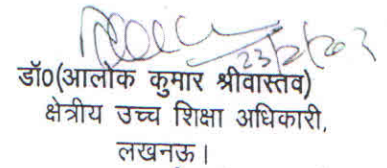 23/2/202
डॉ0(आलोक कुमार श्रीवास्तव)
क्षेत्रीय उच्च शिक्षा अधिकारी,
लखनऊ।